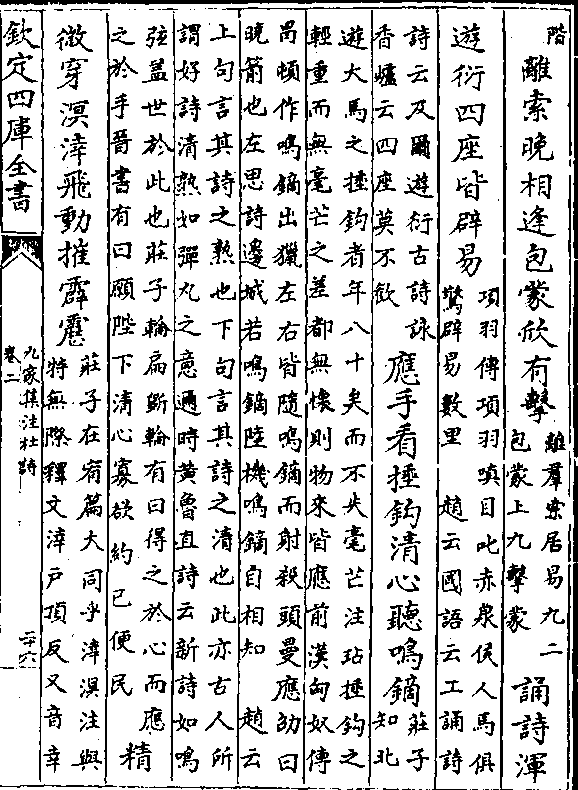 階
離索晚相逢包蒙欣有擊
離羣索居易九二
包蒙上九擊蒙
誦詩渾
遊衍四座皆辟易
項羽傳項羽嗔目叱赤泉侯人馬俱
驚辟易數里 趙云國語云工誦詩
詩云及爾遊衍古詩詠
香爐云四座莫不歡
應手看捶鈎清心聽鳴鏑
莊子
知北
遊大馬之捶鈎者年八十矣而不失毫芒注玷捶鈎之
輕重而無毫芒之差都無懷則物來皆應前漢匈奴傳
冐頓作鳴鏑出獵左右皆隨鳴鏑而射殺頭曼應劭曰
曉箭也左思詩邊城若鳴鏑陸機鳴鏑自相知 趙云
上句言其詩之熟也下句言其詩之清也此亦古人所
謂好詩清熟如彈丸之意邇時黄魯直詩云新詩如鳴
弦盖世於此也莊子輪扁斵輪有曰得之於心而應
之於手晉書有曰願陛下清心寡欲約已便民
精
微穿溟涬飛動摧霹靂
莊子在宥篇大同乎涬溟注與
特無際釋文涬戶頂反又音幸
欽定四庫全書
九家集注杜詩
卷二
二十六